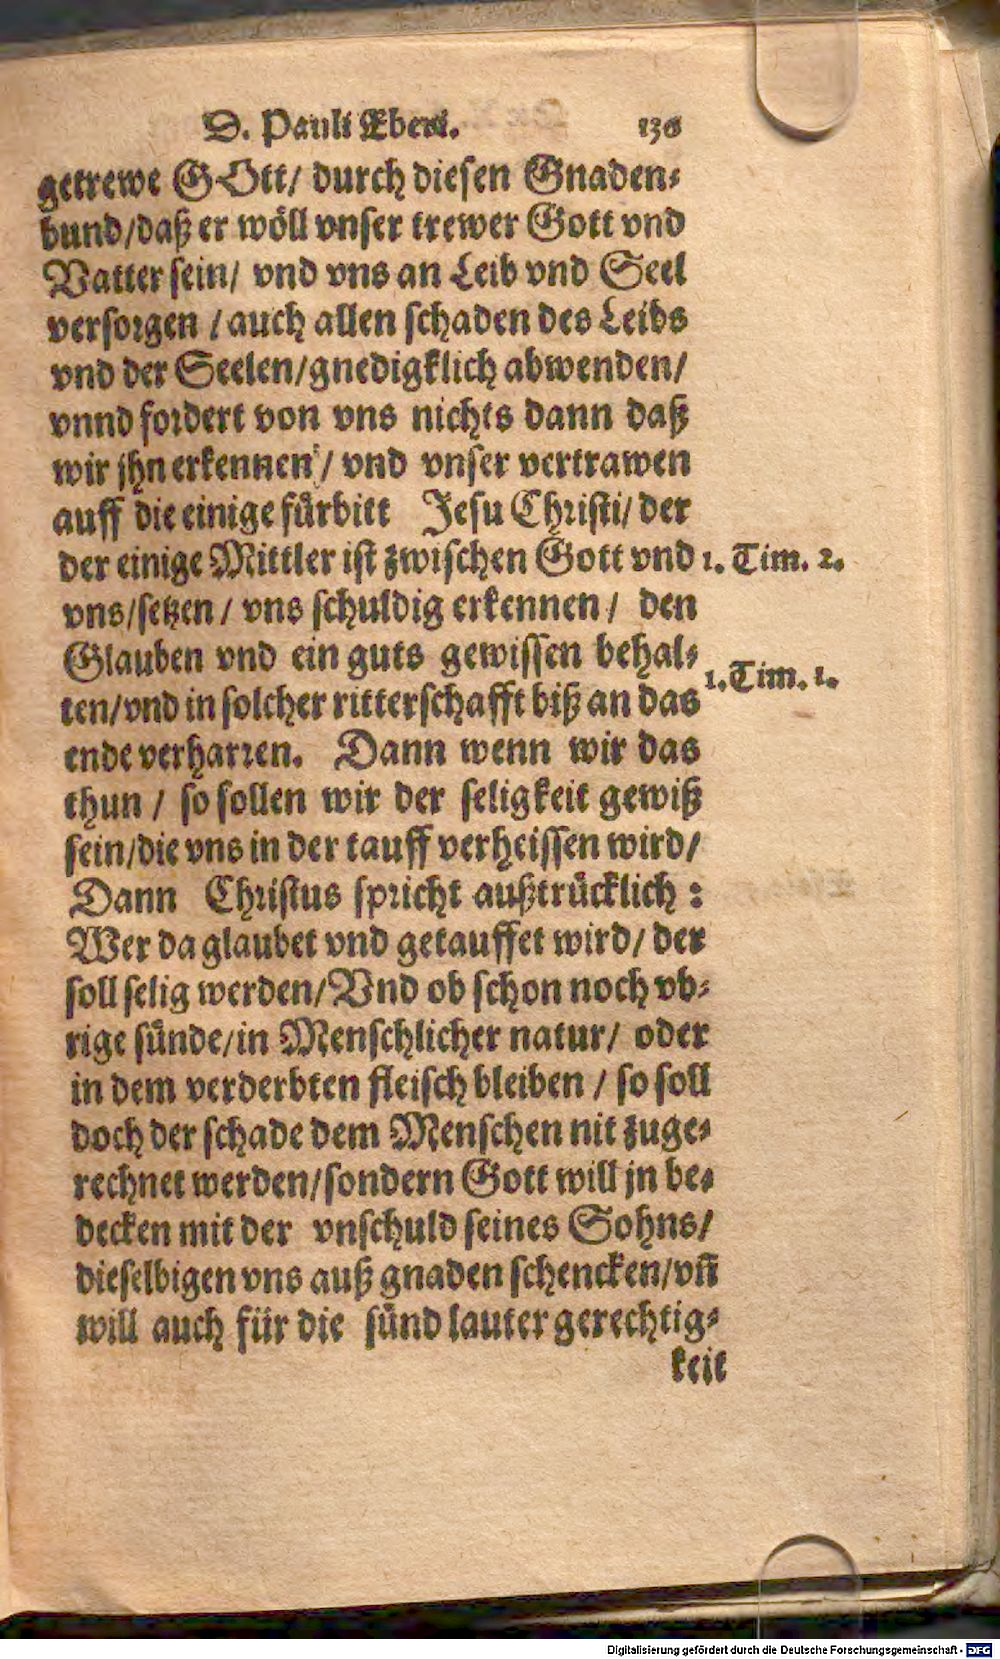 D. Pauli Eberi. 136
getrewe GOtt/ durch diesen Gnaden-
bund/daß er wöll vnser trewer Gott vnd
Vatter sein/ vnd vns an Leib vnd Seel
versorgen / auch allen schaden des Leibs
vnd der Seelen/gnedigklich abwenden/
vnnd fordert von vns nichts dann daß
wir jhn erkennen / vnd vnser vertrawen
auff die einige fürbitt Jesu Christi/ der
der einige Mittler ist zwischen Gott vnd 1. Tim. 2.
vns/setzen / vns schuldig erkennen / den
Glauben vnd ein guts gewissen behal-
1. Tim. 1.
ten/vnd in solcher ritterschafft biß an das
ende verharren. Dann wenn wir das
thun / so sollen wir der seligkeit gewiß
sein/die vns in der tauff verheissen wird/
Dann Christus spricht außtrücklich :
Wer da glaubet vnd getauffet wird/ der
soll selig werden/Vnd ob schon noch vb-
rige sünde/in Menschlicher natur/ oder
in dem verderbten fleisch bleiben / so soll
doch der schade dem Menschen nit zuge-
rechnet werden/sondern Gott will jn be-
decken mit der vnschuld seines Sohns/
dieselbigen vns auß gnaden schencken/vñ
will auch für die sünd lauter gerechtig-
keit
Digitalisierung gefördert durch die Deutsche Forschungsgemeinschaft - DFG